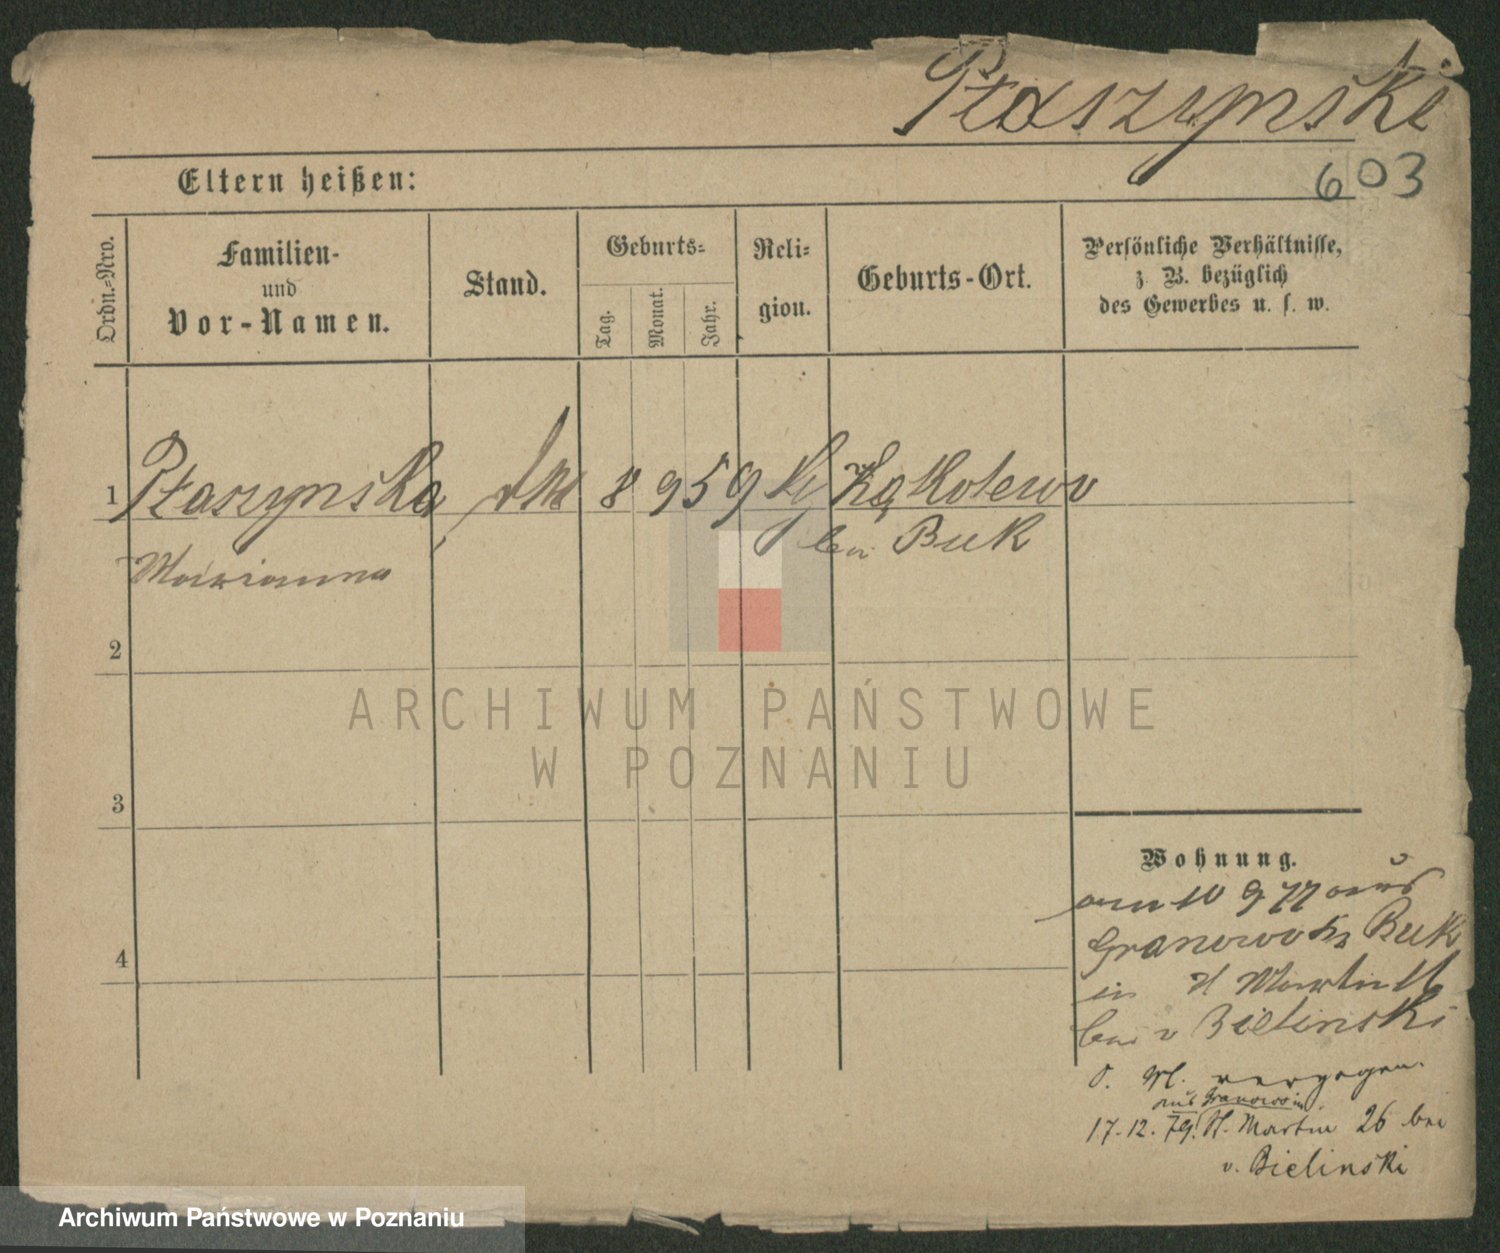 Ptaszynski
603
Eltern heißen:
Ordn.=Nro.
Familien-
und
Vor-Namen.
Stand.
Geburts-
Tag.
Monat.
Jahr.
Reli-
gion.
Geburts-Ort.
Persönliche Verhältnisse,
z. B. bezüglich
des Gewerbes u. s. w.
1 Ptaszynska 8 9 59 Kąkolewo
Marianna bei Buk
2
3
4
Wohnung.
am 10 9 77 aus
Granowo Buk
in St Martin
bei v Bielinski
verzogen.
aus Granowo in
17.12.79. St. Martin 26 bei
v. Bielinski
ARCHIWUM PAŃSTWOWE
W POZNANIU
Archiwum Państwowe w Poznaniu